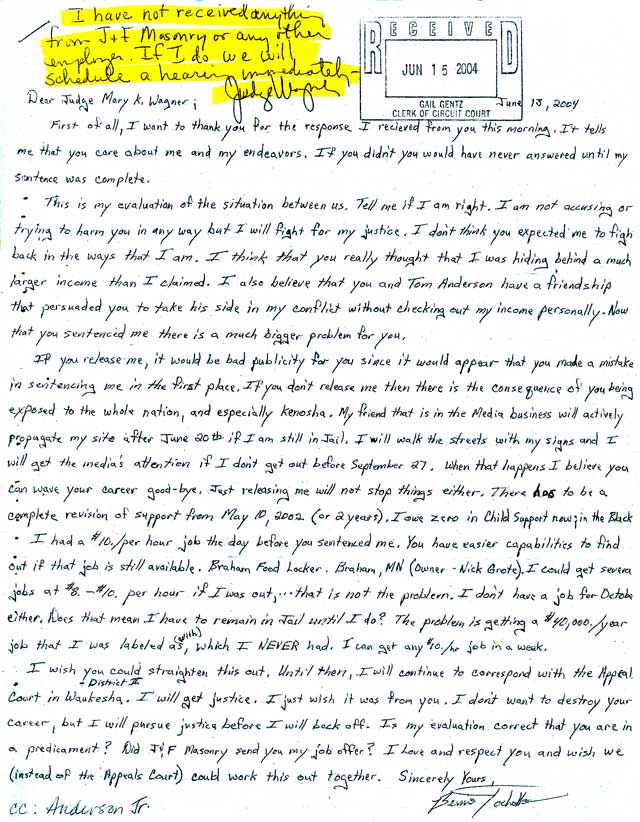 I have not received anythin
from J+F Masonry or any other
employer. If I do we will
schedule a hearing immediately-
Judge Wagner
RECEIVED
JUN 15 2004
GAIL GENTZ
CLERK OF CIRCUIT COURT
June 13, 2004
Dear Judge Mary K. Wagner;
First of all, I want to thank you for the response I recieved from you this morning. It tells
me that you care about me and my endeavors. If you didn't you would have never answered until my
sentence was complete.
This is my evaluation of the situation between us. Tell me if I am right. I am not accusing or
trying to harm you in any way but I will fight for my justice. I don't think you expected me to figh
back in the ways that I am. I think that you really thought that I was hiding behind a much
larger income than I claimed. I also believe that you and Tom Anderson have a friendship
that persuaded you to take his side in my conflict without checking out my income personally. Now
that you sentenced me there is a much bigger problem for you.
If you release me, it would be bad publicity for you since it would appear that you made a mistake
in sentencing me in the first place. If you don't release me then there is the consequence of you being
exposed to the whole nation, and especially Kenosha. My friend that is in the Media business will actively
propagate my site after June 20th if I am still in Jail. I will walk the streets with my signs and I
will get the media's attention if I don't get out before September 27. When that happens I believe you
can wave your career good-bye. Just releasing me will not stop things either. There has to be a
complete revision of support from May 10, 2002 (or 2 years). I owe zero in Child Support now; in the Black
I had a $10./per hour job the day before you sentenced me. You have easier capabilities to find
out if that job is still available. Braham Food Locker. Braham, MN (Owner - Nick Grote). I could get severa
jobs at $8.-$10. per hour if I was out,...that is not the problem. I don't have a job for Octobe
either. Does that mean I have to remain in Jail until I do? The problem is getting a $40,000./year
job that I was labeled as (with), which I NEVER had. I can get any $10./hr job in a week.
I wish you could straighten this out. Until then, I will continue to correspond with the Appeal
- District II
Court in Waukesha. I will get justice. I just wish it was from you. I don't want to destroy your
career, but I will pursue justice before I will back off. Is my evaluation correct that you are in
a predicament? Did J+F Masonry send you my job offer? I love and respect you and wish we
(instead of the Appeals Court) could work this out together. Sincerely Yours,
cc: Anderson Jr